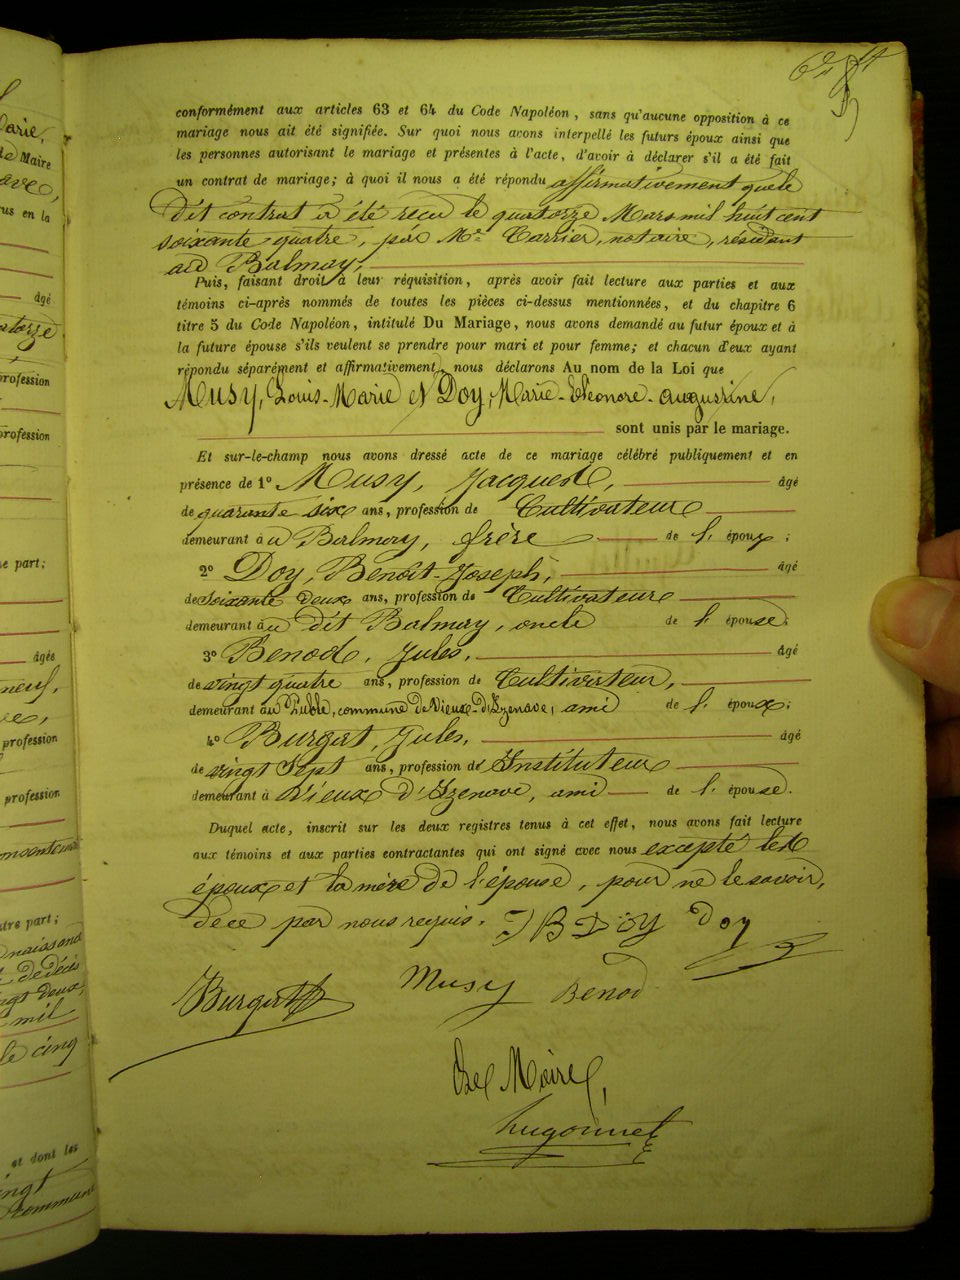 conformément aux articles 63 et 64 du Code Napoléon, sans qu'aucune opposition à ce
mariage nous ait été signifiée. Sur quoi nous avons interpellé les futurs époux ainsi que
les personnes autorisant le mariage et présentes à l'acte, d'avoir à déclarer s'il a été fait
un contrat de mariage; à quoi il nous a été répondu affirmativement que le
dit contrat a été recu le quatorze Mars mil huit cent
soixante quatre, par Me Carrier, notaire, résidant
au Balmay,
Puis, faisant droit à leur réquisition, après avoir fait lecture aux parties et aux
témoins ci-après nommés de toutes les pièces ci-dessus mentionnées, et du chapitre 6
titre 5 du Code Napoléon, intitulé Du Mariage, nous avons demandé au futur époux et à
la future épouse s'ils veulent se prendre pour mari et pour femme; et chacun d'eux ayant
répondu séparément et affirmativement, nous déclarons Au nom de la Loi que
Musy, Louis-Marie et Doy, Marie-Eléonore-augustine,
sont unis par le mariage.
Et sur-le-champ nous avons dressé acte de ce mariage célébré publiquement et en
présence de 1o Musy, Jacques, âgé
de quarante six ans, profession de Cultivateur
demeurant à u Balmay, frère de l' époux;
2o Doy, Benoît-Joseph, âgé
de soixante deux ans, profession de Cultivateur
demeurant à u dit Balmay, oncle de l' épouse;
3o Benod, Jules, âgé
de vingt quatre ans, profession de Cultivateur,
demeurant au commune de Vieux-d'Izenave, ami de l' époux;
4o Burgat, Jules, âgé
de vingt Sept ans, profession de Instituteur
demeurant à Vieux d'Izenave, ami de l' épouse.
Duquel acte, inscrit sur les deux registres tenus à cet effet, nous avons fait lecture
aux témoins et aux parties contractantes qui ont signé avec nous excepté les
époux et la mère de l'épouse, pour ne le savoir,
de ce par nous requis. J B Doy Doy
Burgat Musy Benod
Le Maire,
hugonnet